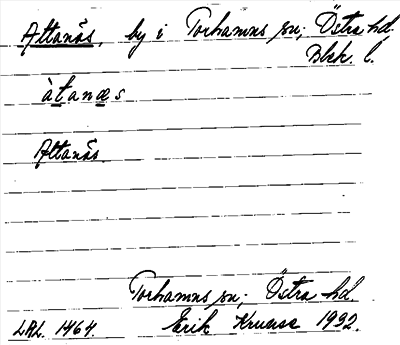 Attanäs, by i Torhamns sn; Östra hd.
Blek. l.
àtanæs
Attanäs.
Torhamns sn; Östra hd.
LAL. 1464. Erik Kruuse 1932.